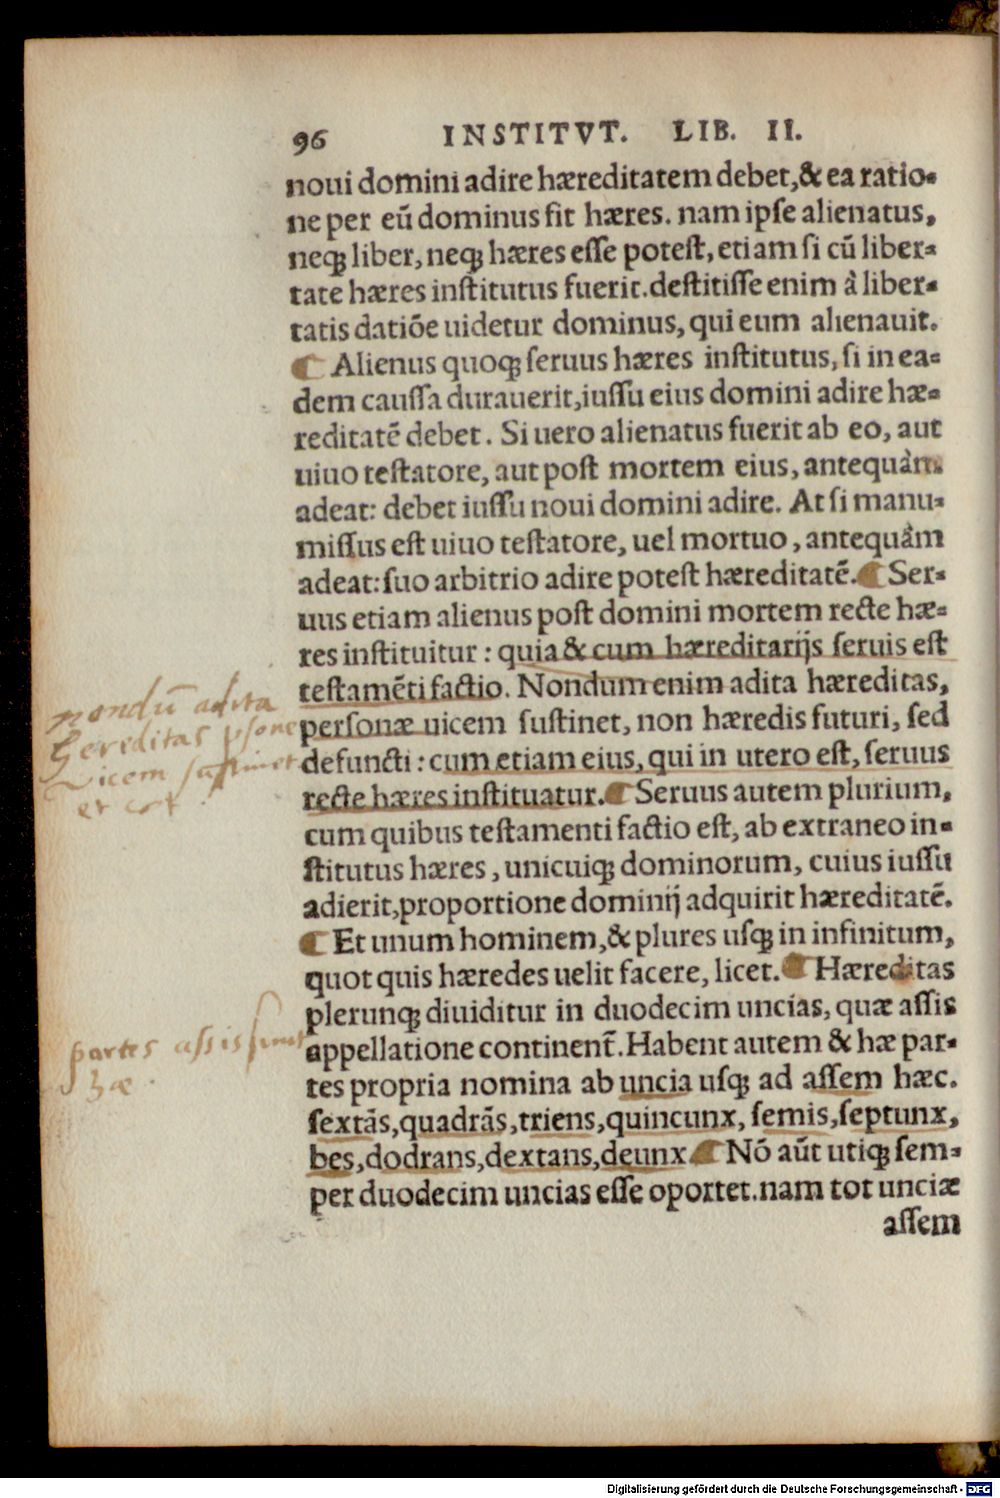 96 INSTITVT. LIB. II.
noui domini adire hæreditatem debet, & ea ratio-
ne per eũ dominus fit hæres. nam ipſe alienatus,
neqꝫ liber, neqꝫ hæres eſſe poteſt, etiam ſi cũ liber-
tate hæres inſtitutus fuerit. deſtitiſſe enim à liber-
tatis datiõe uidetur dominus, qui eum alienauit.
¶ Alienus quoqꝫ ſeruus hæres inſtitutus, ſi in ea-
dem cauſſa durauerit, iuſſu eius domini adire hæ-
reditatẽ debet. Si uero alienatus fuerit ab eo, aut
uiuo teſtatore, aut poſt mortem eius, antequàm
adeat: debet iuſſu noui domini adire. At ſi manu-
miſſus eſt uiuo teſtatore, uel mortuo, antequàm
adeat: ſuo arbitrio adire poteſt hæreditatẽ. ¶ Ser-
uus etiam alienus poſt domini mortem recte hæ-
res inſtituitur: quia & cum hæreditarijs ſeruis eſt
teſtamẽti factio. Nondum enim adita hæreditas,
perſonæ uicem ſuſtinet, non hæredis futuri, ſed
defuncti: cum etiam eius, qui in utero eſt, ſeruus
recte hæres inſtituatur. ¶ Seruus autem plurium,
cum quibus teſtamenti factio eſt, ab extraneo in-
ſtitutus hæres, unicuiqꝫ dominorum, cuius iuſſu
adierit, proportione dominij adquirit hæreditatẽ.
¶ Et unum hominem, & plures uſqꝫ in infinitum,
quot quis hæredes uelit facere, licet. ¶ Hæreditas
plerunqꝫ diuiditur in duodecim uncias, quæ aſſis
appellatione continent̃. Habent autem & hæ par-
tes propria nomina ab uncia uſqꝫ ad aſſem hæc.
ſextãs, quadrãs, triens, quincunx, ſemis, ſeptunx,
bes, dodrans, dextans, deunx. ¶ Nõ aũt utiqꝫ ſem-
per duodecim uncias eſſe oportet. nam tot unciæ
aſſem
nondũ adita
hereditas pſone
vicem ſuſtinet
et
partes aſſis ſunt
hæ.
Digitalisierung gefördert durch die Deutsche Forschungsgemeinschaft - DFG